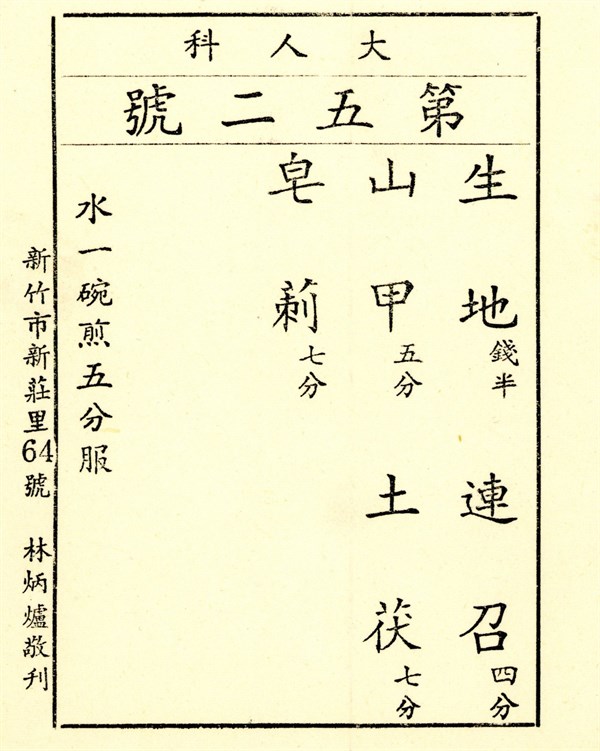 大人科
第五二號
生地錢半 連召四分
山甲五分 土茯七分
皂莿七分
水一碗煎五分服
新竹市新莊里64號 林炳爐敬刋